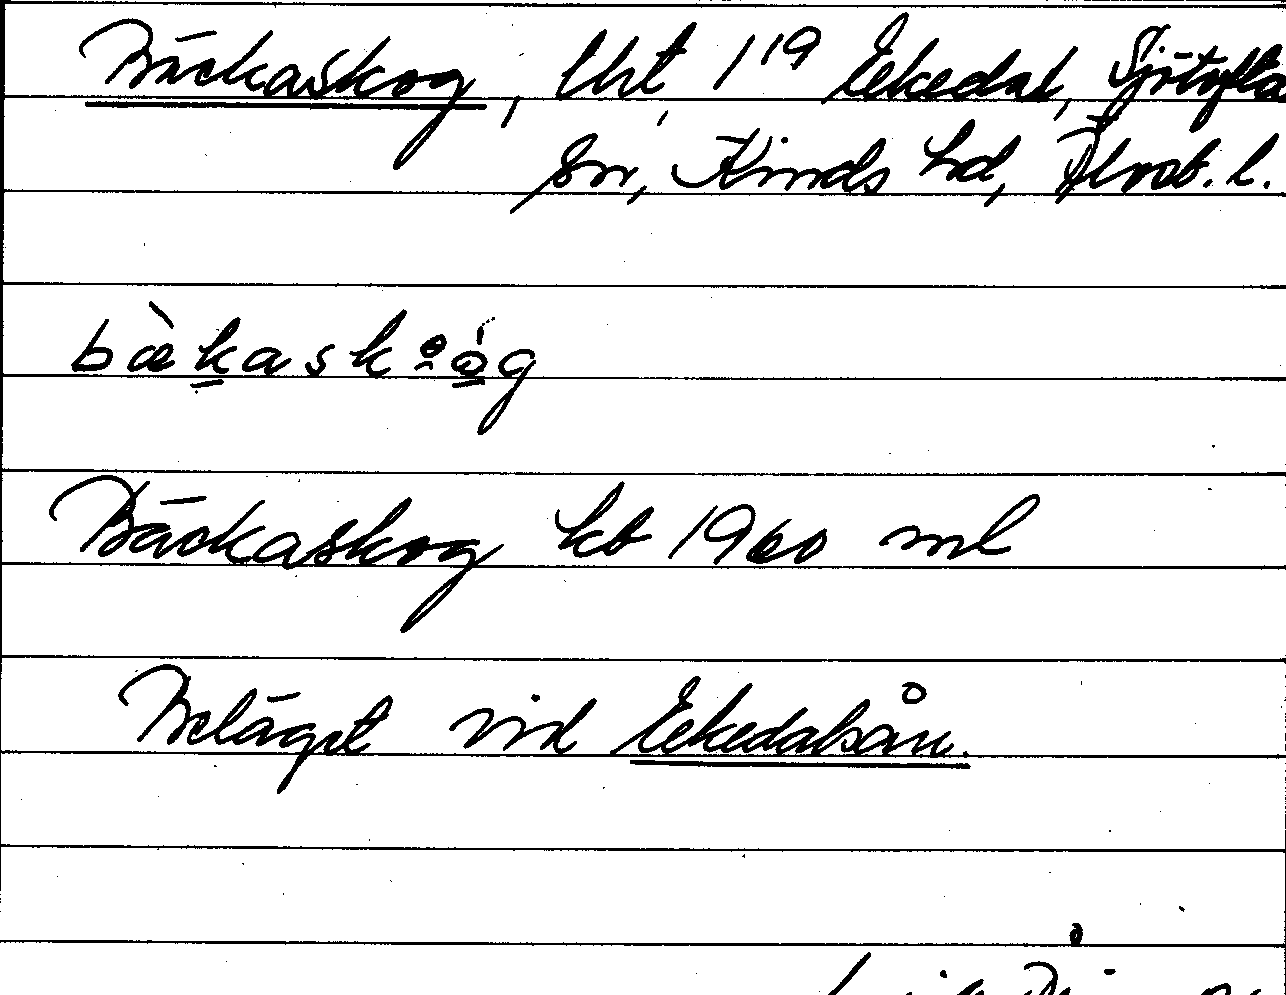 Bäckaskog, lht, 1¹⁹ Ekedal, Sjötofta
sn, Kinds hd, Älvsb. l.
bàkaskog
Bäckaskog kb 1960 ml
Beläget vid Ekedalsån.